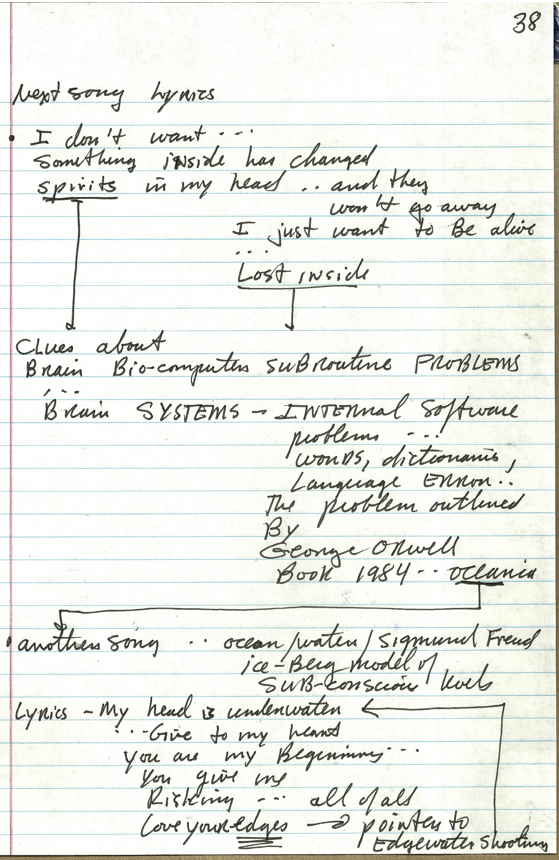 38
Next song Lyrics
• I don't want ...
Something inside has changed
spirits in my head .. and they
won't go away
I just want to Be alive
...
Lost inside
CLues about
Brain Bio-computer SUBROUTINE PROBLEMS
...
Brain SYSTEMS - INTERNAL Software
problems ...
WORDS, dictionaris,
Language ERROR..
The problem outlined
By
George ORwell
Book 1984 .. oceania
• another song .. ocean/water/Sigmund Freud
ice-Berg model of
SUB-conscious levels
Lyrics - My head is underwater
... Give to my heart
You are my Beginning...
You give me
Risking ... all of all
Love your edges → pointer to
Edgewater Shooting